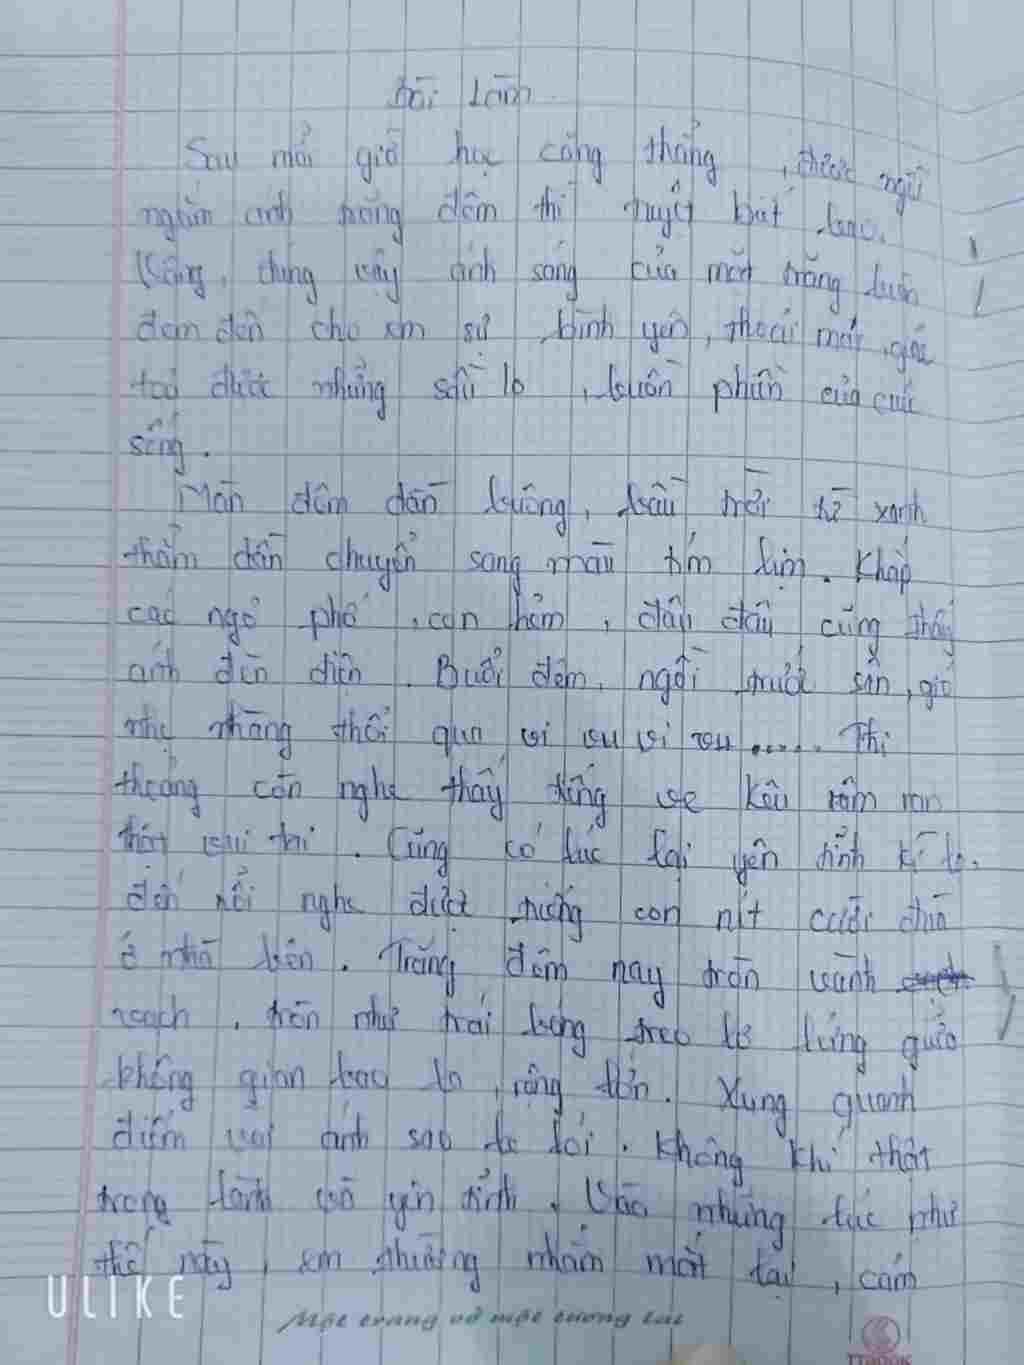 Bài làm
Sau mỗi giờ học căng thẳng, được ngồi
ngắm ánh trăng đêm thì tuyệt biết bao.
Vâng, đúng vậy ánh sáng của mặt trăng luôn
đem đến cho em sự bình yên, thoải mái, giải
toả được những sầu lo, buồn phiền của cuộc
sống.
Màn đêm dần buông, bầu trời từ xanh
thẳm dần chuyển sang màu tím lịm. Khắp
các ngỏ phố, con hẻm, đâu đâu cũng thấy
ánh đèn điện. Buổi đêm, ngồi trước sân, gió
nhẹ nhàng thổi qua vi vu vi vu..... Thi
thoảng còn nghe thấy tiếng ve kêu râm ran
thật vui tai. Cũng có lúc lại yên tỉnh kì lạ,
đến nỗi nghe được tiếng con nít cười đùa
ở nhà bên. Trăng đêm nay tròn vành
vạch, tròn như trái bóng treo lơ lửng giữa
không gian bao la, rộng lớn. Xung quanh
điểm vài ánh sao le lói. Không khí thật
trong lành và yên tỉnh. Vào những lúc như
thế này, em thường nhắm mắt lại, cảm
ULIKE
Một trang vở một tương lai